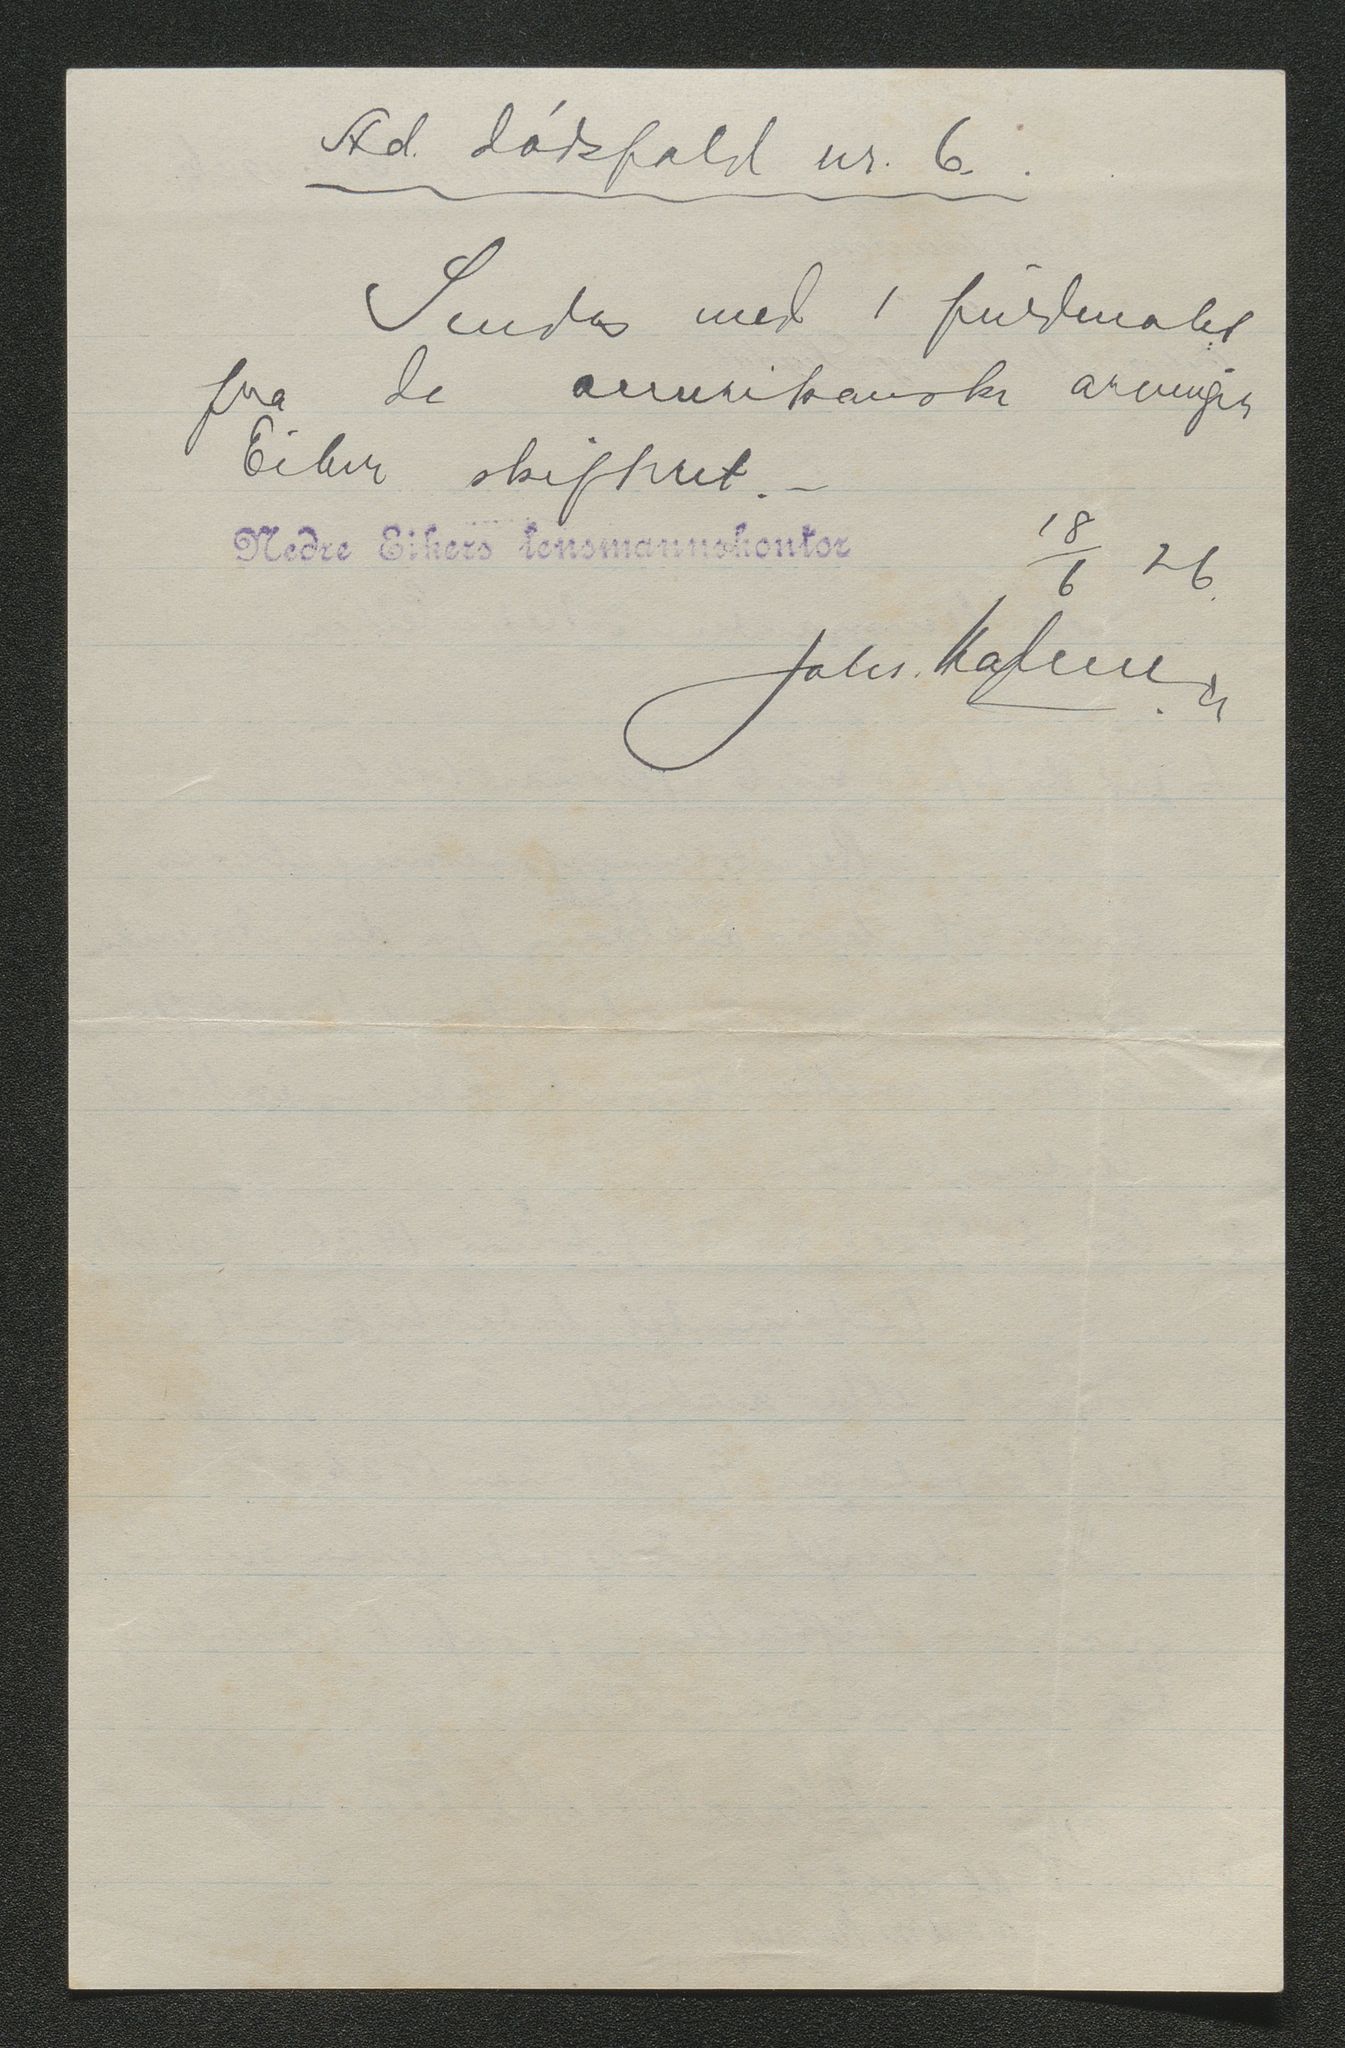 Ad. dödsfald nr. 6.
Sendes med 1 fuldmakt
fra de amerikanske arvinger
Eiker skifteret. -
Nedre Eikers lensmannskontor
18/6 26.
Johs.